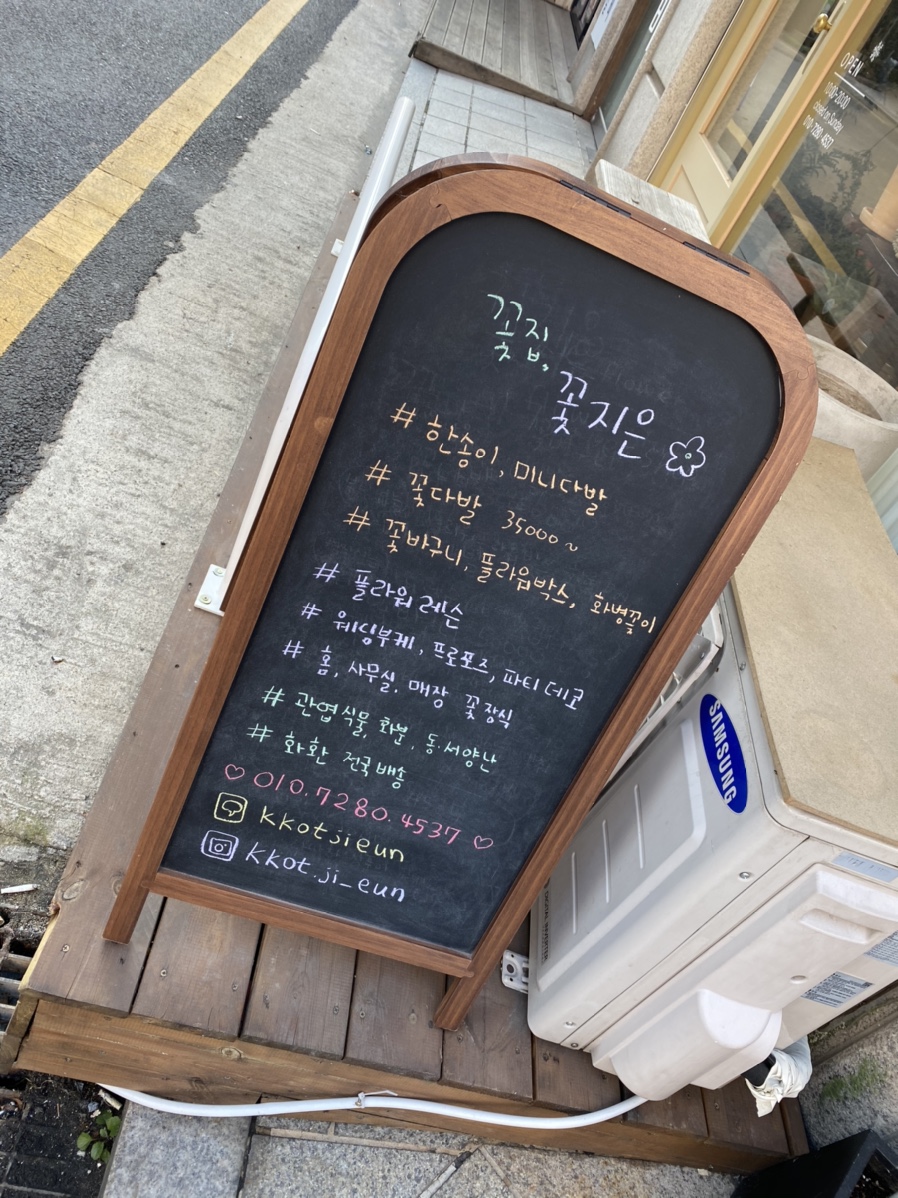 꽃집,
꽃지은
# 한송이, 미니다발
# 꽃다발 35000~
# 꽃바구니, 플라워박스, 화병꽃이
# 플라워 레슨
# 웨딩부케, 프로포즈, 파티데코
# 홈, 사무실, 매장 꽃장식
# 관엽식물, 화분, 동·서양난
# 화환 전국배송
♡ 010.7280.4537 ♡
kkotjieun
kkot.ji_eun
SAMSUNG
OPEN
10:00-20:00
closed on Sunday
010-7280-4537